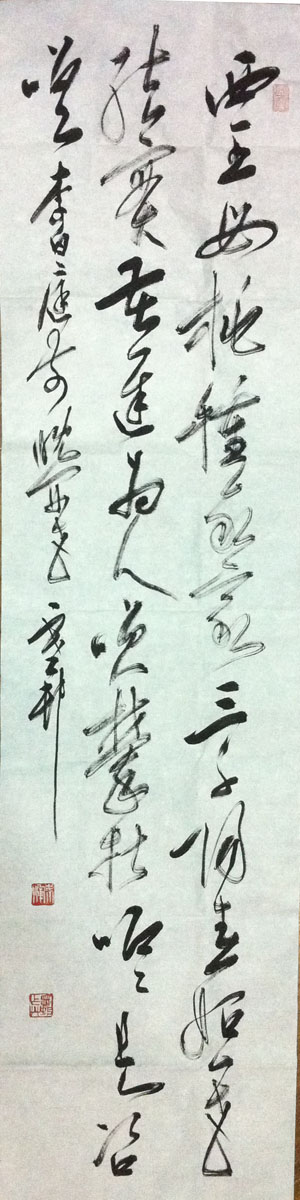 西王母桃种我家三千阳春始一花
结实苦迟为人笑攀折唧唧长咨
嗟 李白庭前晚开花